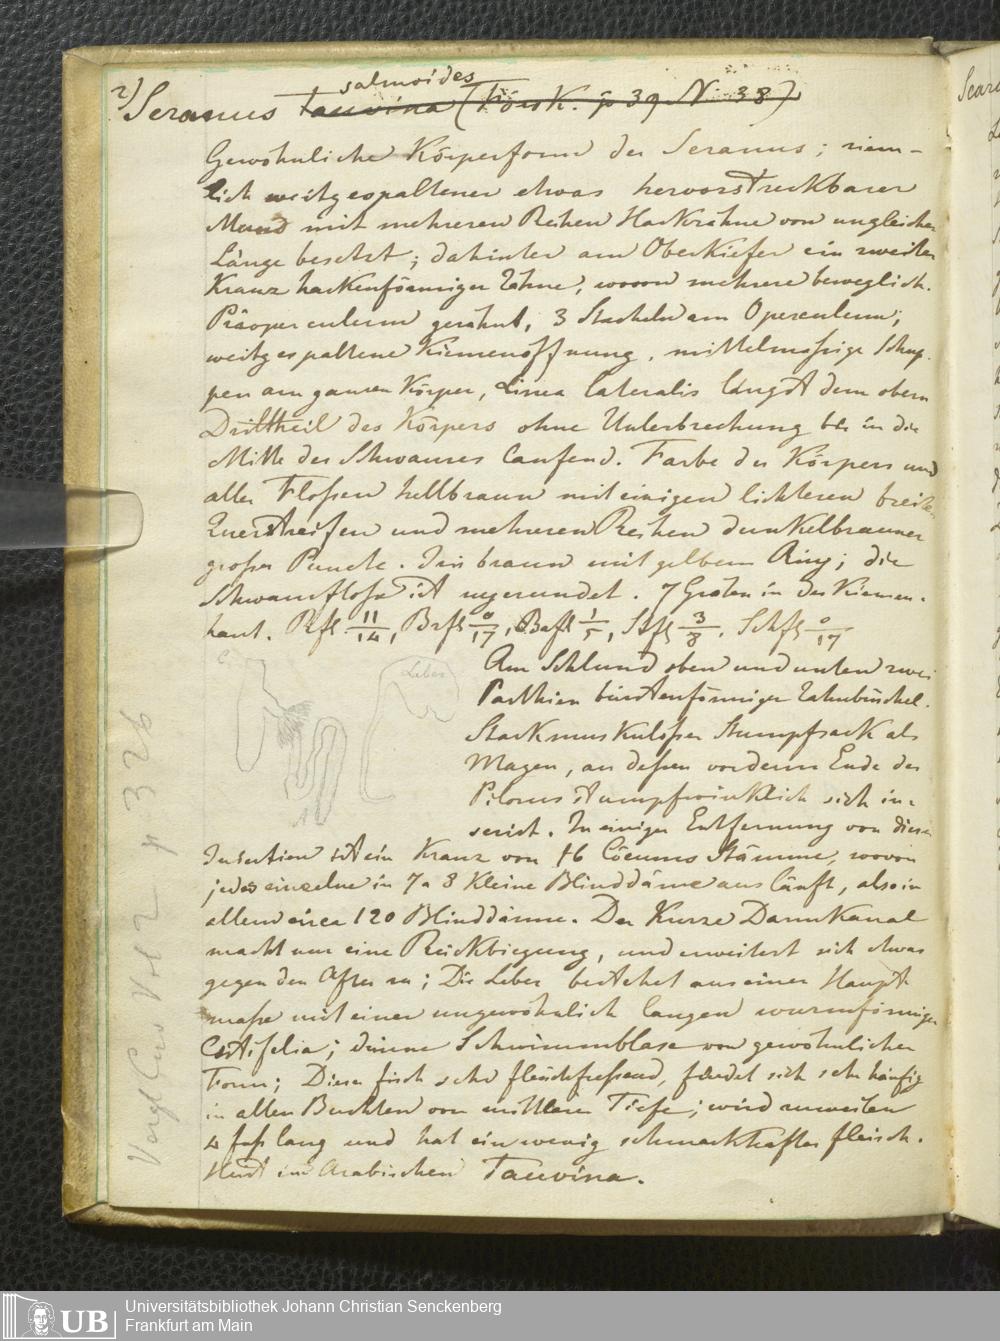 2) Seranus salmoides Tauvina (Försk. p 39 N. 38)
Gewöhnliche Körperform der Seranus; ziem-
lich weitgespaltener etwas hervorstreckbarer
Mund mit mehreren Reihen Hackzähne von ungleicher
Länge besetzt; dahinter am Oberkiefer ein zweiter
Kranz hackenförmiger Zähne, wovon mehrere beweglich.
Präoperculum gezähnt, 3 Stacheln am Operculum;
weitgespaltene Kiemenöffnung, mittelmäsige Schup-
pen am ganzen Körper, Linea lateralis längst dem obern
Drittheil des Körpers ohne Unterbrechung bis in die
Mitte des Schwanzes laufend. Farbe des Körpers und
aller Flossen hellbraun mit einigen lichteren breiten
Querstreifen und mehreren Reihen dunkelbrauner
grosser Puncte. Iris braun mit gelbem Ring; die
Schwanzflosse ist zugerundet. 7 Gräten in der Kiemen-
haut. Rfl 11/14, Brfl 0/17, Bafl 1/5, Stfl 3/8, Schfl 0/17
Leber
Am Schlund oben und unten zwei
Parthien bürstenförmiger Zahnbüschel.
Stark muskulöser Stumpfsack als
Magen, an dessen vorderm Ende der
Pilorus stumpfwinklich sich in-
serirt. In einiger Entfernung von dieser
Insertion ist ein Kranz von 16 Cöcums Stämme, wovon
jedes einzelne in 7 a 8 kleine Blinddärme ausläuft, also in
allem circa 120 Blinddärme. Der kurze Darmkanal
macht nur eine Rückbiegung, und erweitert sich etwas
gegen den After zu; Die Leber bestehet aus einer Haupt
masse mit einer ungewöhnlich langen wurmförmigen
dünne Schwimmblase von gewöhnlicher
Form; Dieser fisch sehr fleischfressend, findet sich sehr häufig
in allen Buchten von mittlerer Tiefe; wird zuweilen
4 fuss lang und hat ein wenig schmackhaftes fleisch.
Heist im Arabischen Tauvina.
Vergl Cuv Vol 2 p 326
Universitätsbibliothek Johann Christian Senckenberg
Frankfurt am Main
UB